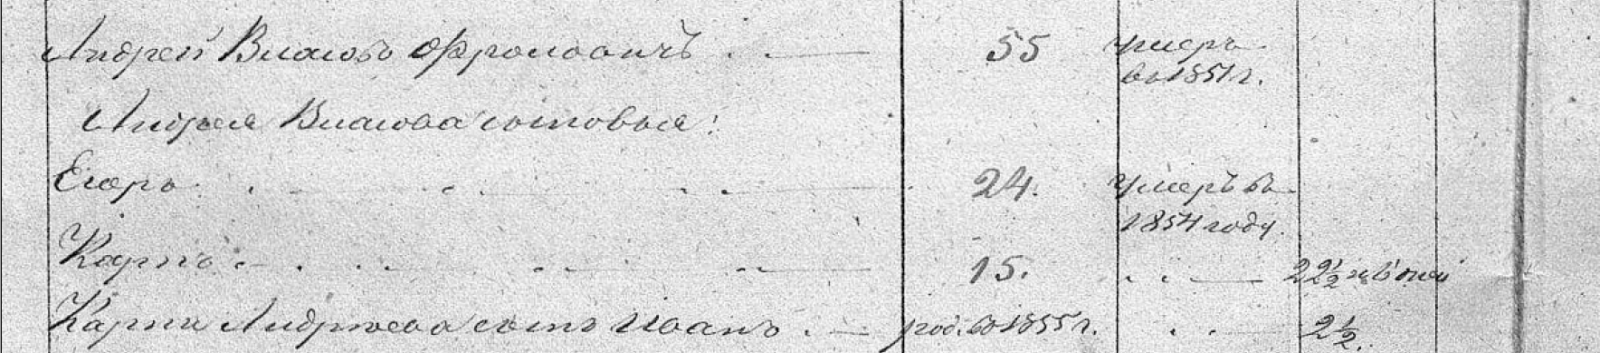 Андрей Власовъ Фроловичъ 55 умеръ
въ 1851 г.
Андрея Власова сыновья:
Егоръ 24. умеръ въ
1854 году.
Карпъ 15. 22½
Карпа Андреева сынъ Иванъ род. въ 1855 г. 2½.